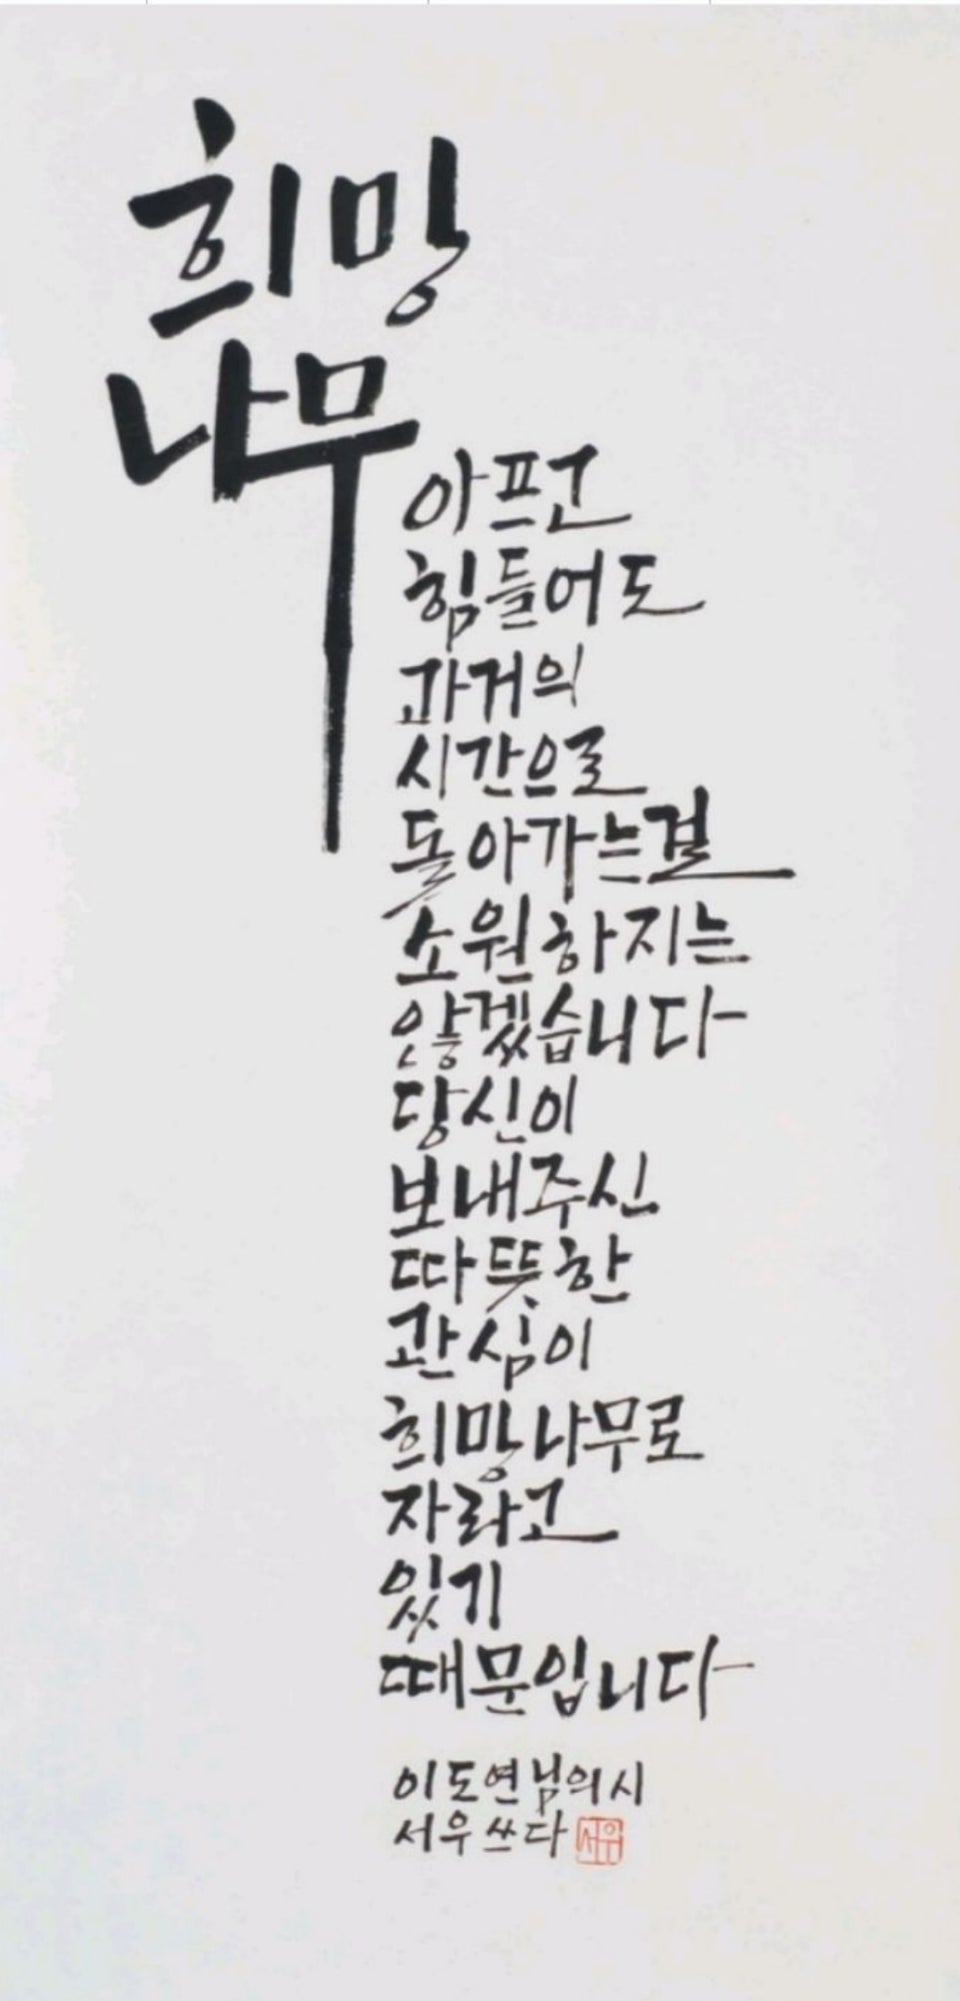 희망
나무
아프고
힘들어도
과거의
시간으로
돌아가는걸
소원하지는
않겠습니다
당신이
보내주신
따뜻한
관심이
희망나무로
자라고
있기
때문입니다
이도연님의시
서우쓰다
서우